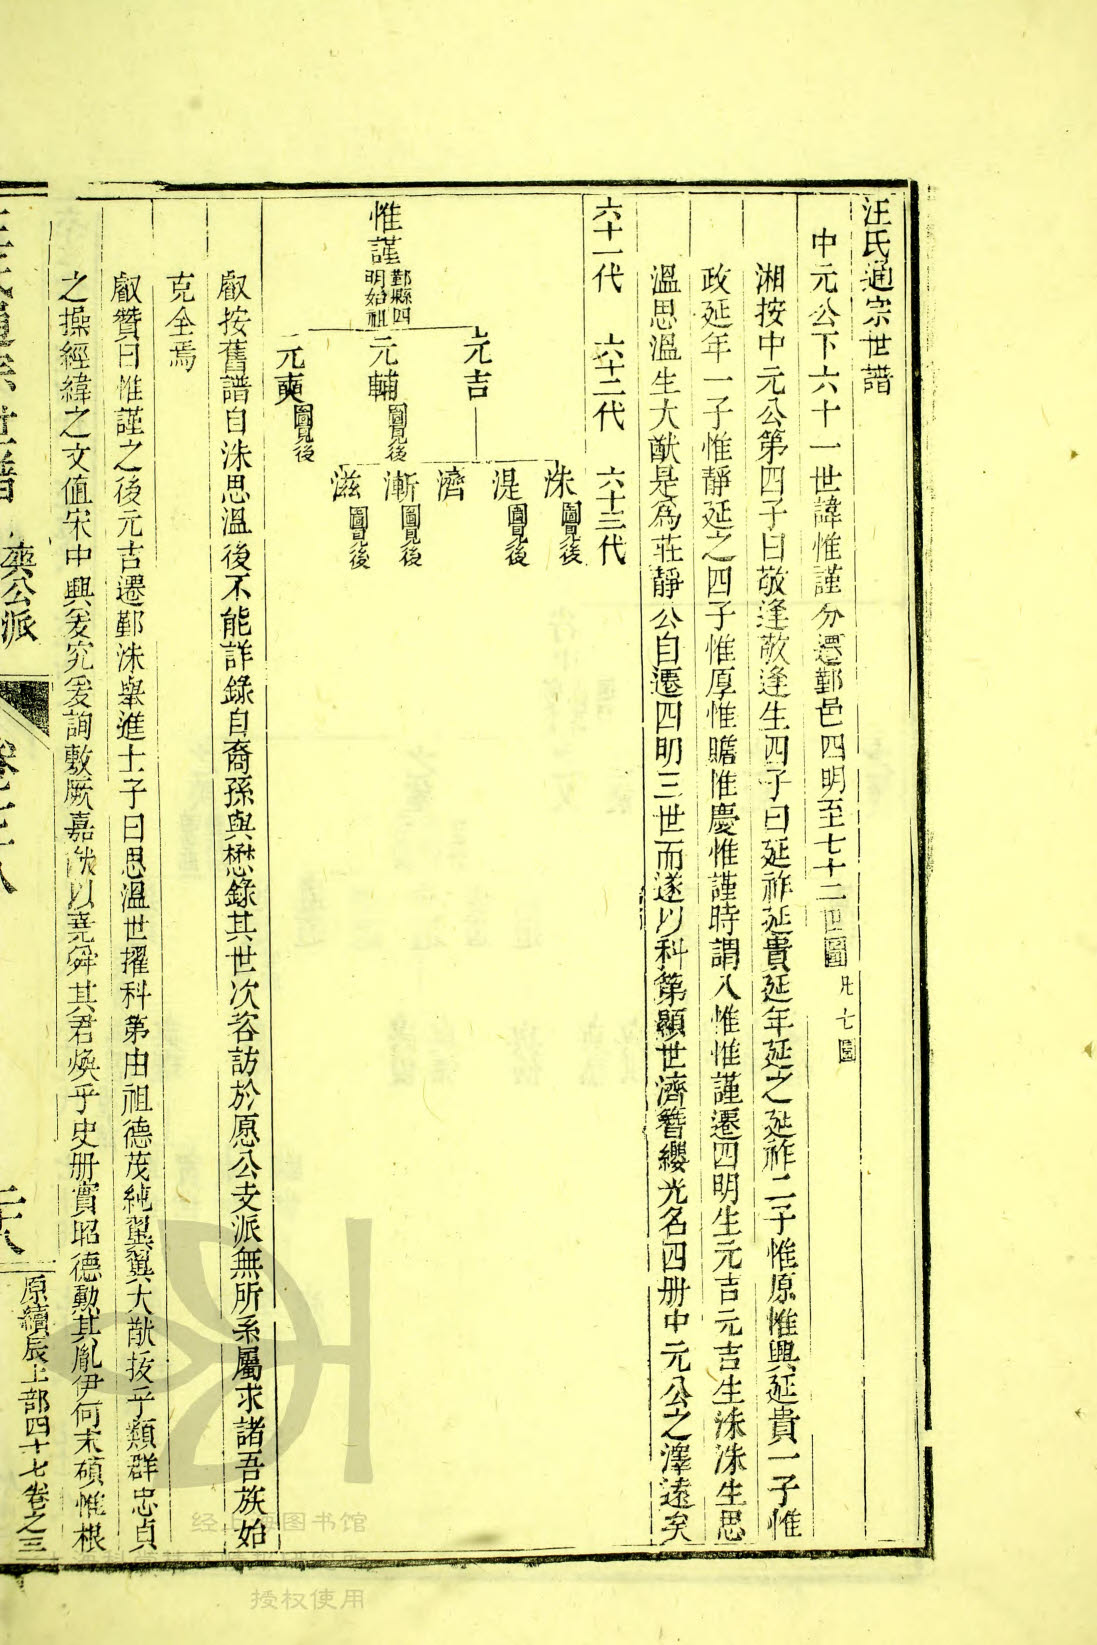 汪氏通宗世譜
中元公下六十一世諱惟謹分遷鄞邑四明至七十二世圖凡七圖
湘按中元公第四子曰敬逢敬逢生四子曰延祚延貴延年延之延祚二子惟原惟興延貴一子惟
政延年一子惟靜延之四子惟厚惟瞻惟慶惟謹時謂八惟惟謹遷四明生元吉元吉生洙洙生思
溫思溫生大猷是為莊靜公自遷四明三世而遂以科第顯世濟簪纓光名四册中元公之澤遠矣
六十一代 六十二代 六十三代
惟謹鄞縣四明始祖
元吉
元輔圖見後
元奭圖見後
洙圖見後
湜圖見後
濟
漸圖見後
滋圖見後
叡按舊譜自洙思溫後不能詳錄自裔孫與懋錄其世次咨訪於愿公支派無所系屬求諸吾族始
克全焉
叡贊曰惟謹之後元吉遷鄞洙舉進士子曰思溫世擢科第由祖德茂純翼翼大猷拔乎類群忠貞
之操經緯之文值宋中興爰究爰詢敷厥嘉猷以堯舜其君煥乎史册實昭德勲其胤伊何末碩惟根
汪氏通宗世譜 爽公派 二十八 原續辰上部四十七卷之三
经上海图书馆
授权使用